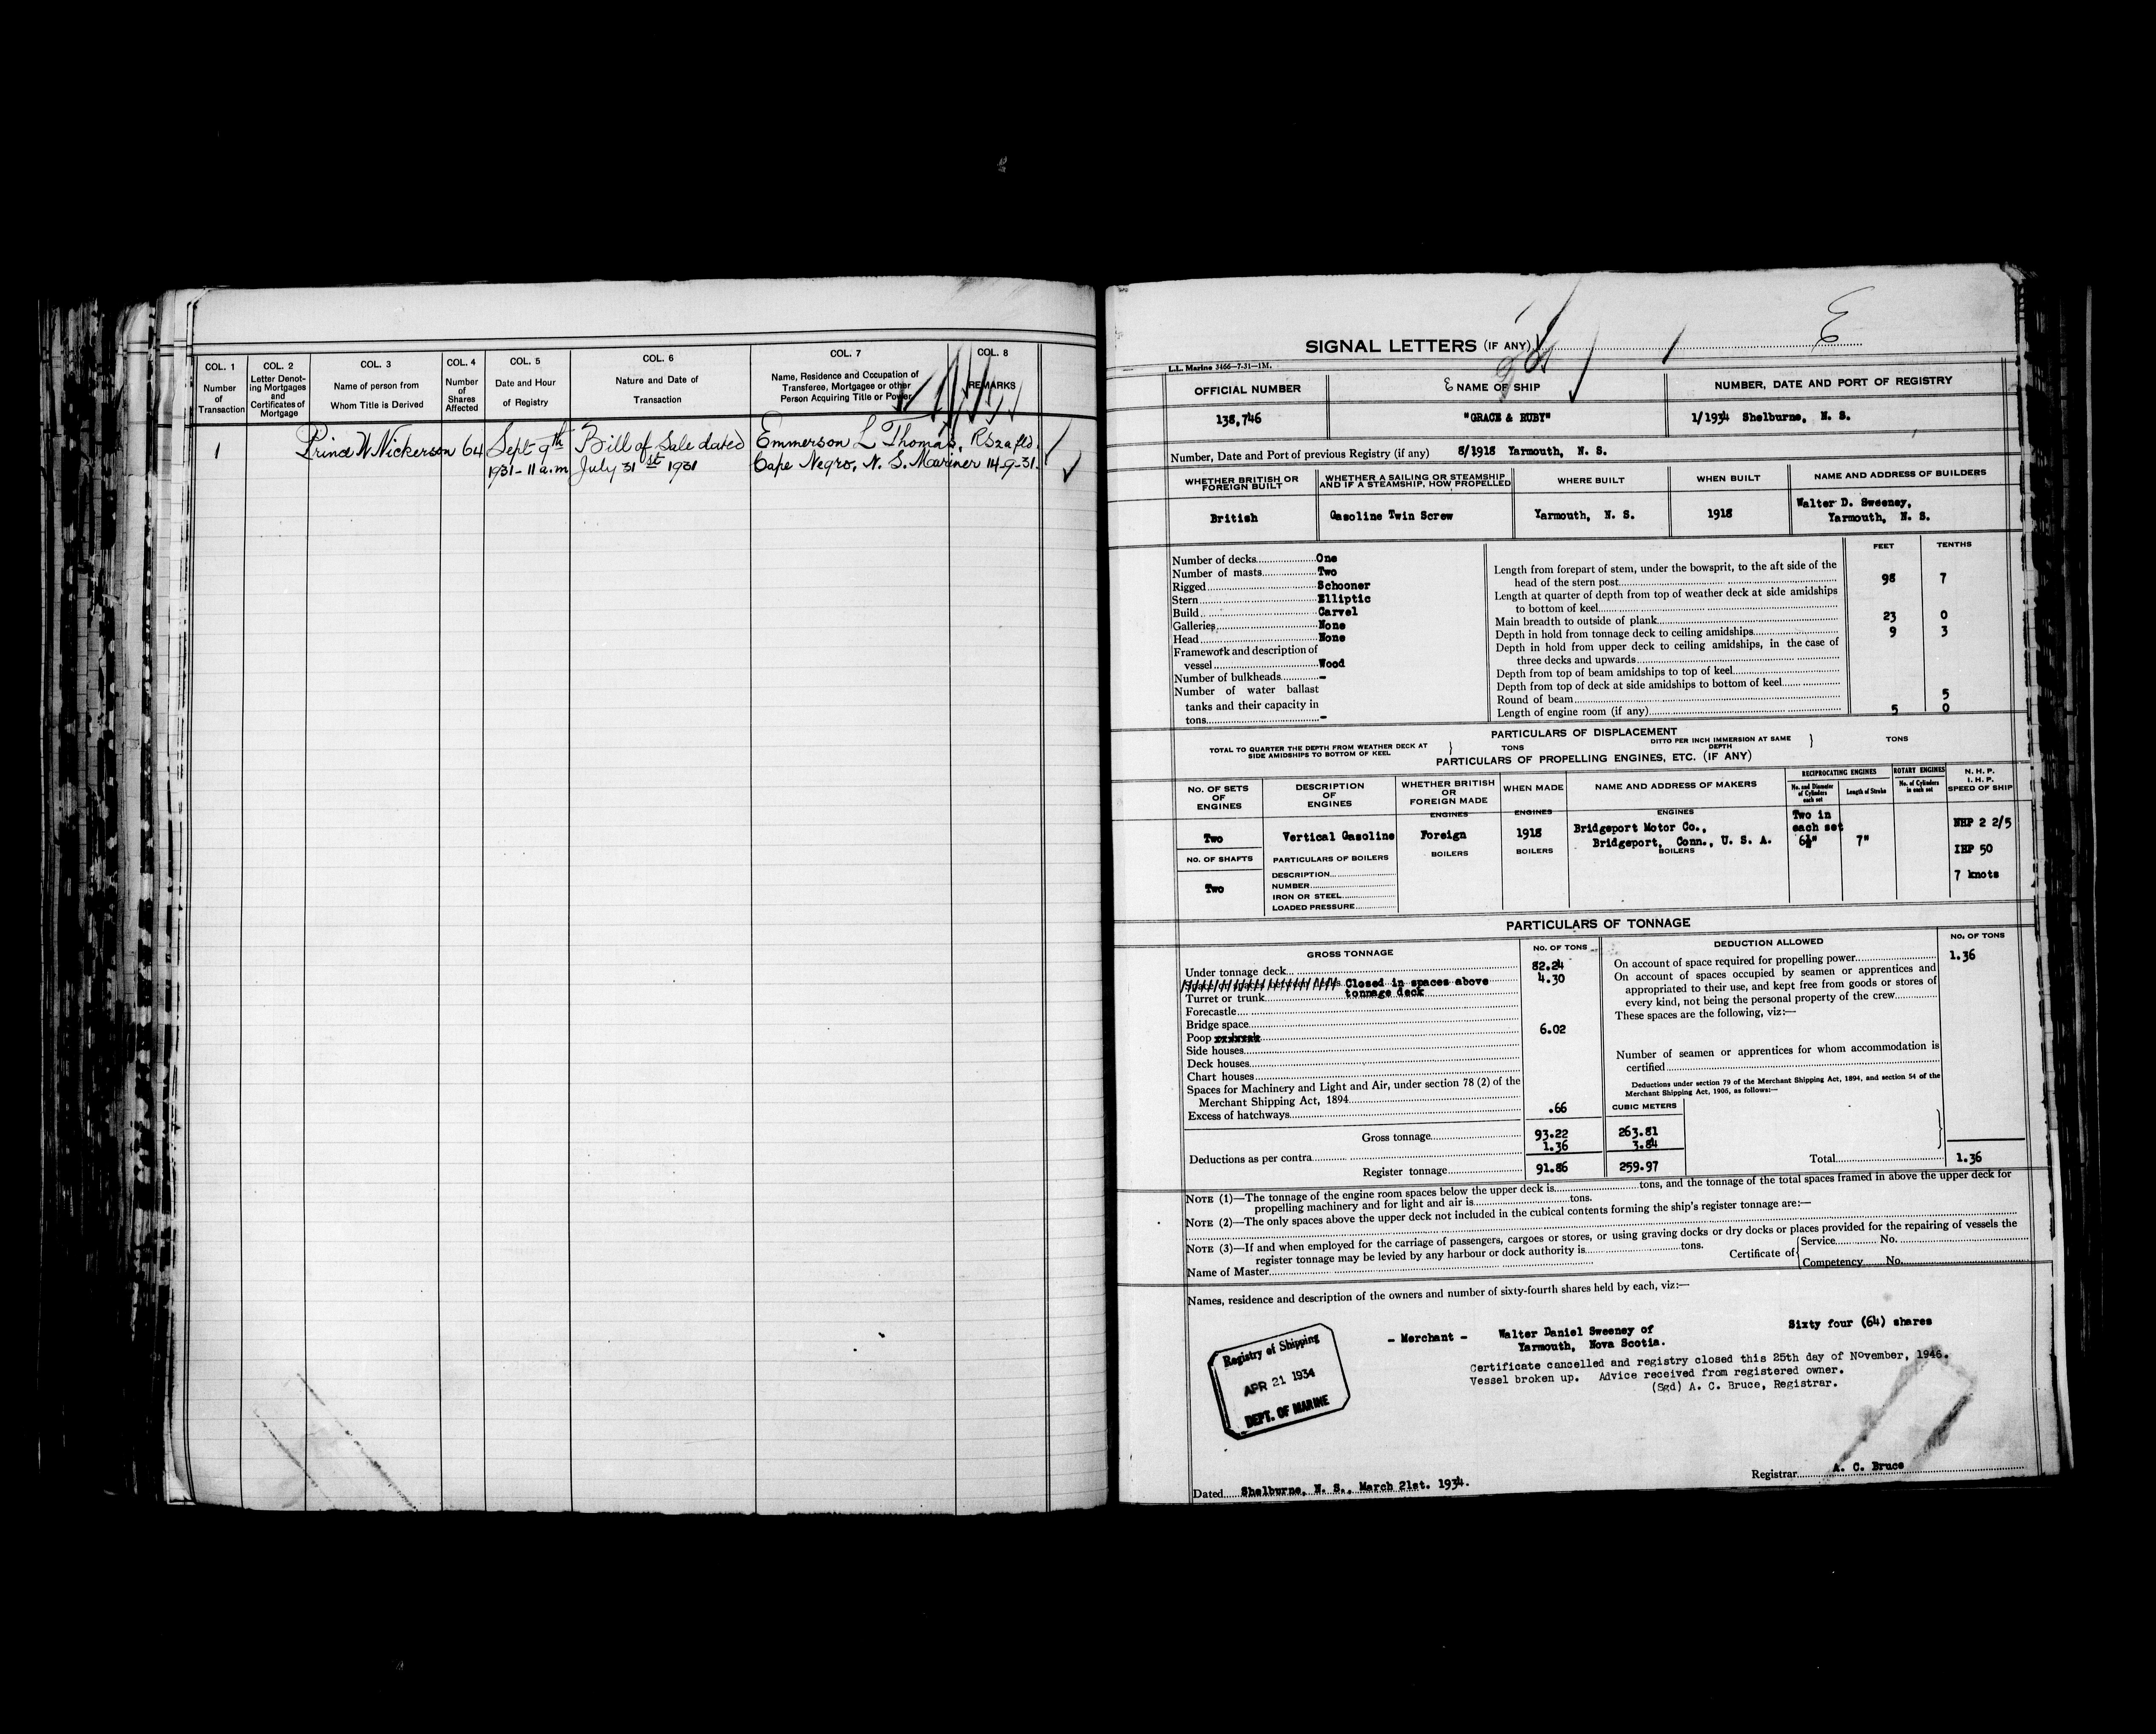 COL. 1
Number
of
Transaction
COL. 2
Letter Denot-
ing Mortgages
and
Certificates of
Mortgage
COL. 3
Name of person from
Whom Title is Derived
COL. 4
Number
of
Shares
Affected
COL. 5
Date and Hour
of Registry
COL. 6
Nature and Date of
Transaction
COL. 7
Name, Residence and Occupation of
Transferee, Mortgagee or other
Person Acquiring Title or Power
COL. 8
REMARKS
1 Prince W Nickerson 64 Sept 9th Bill of Sale dated Emmerson L Thomas,
1931-11 a.m July 31st 1931 Cape Negro, N. S. Mariner 14-9-31.
SIGNAL LETTERS (IF ANY)
L.L. Marine 3466—7-31—1M.
OFFICIAL NUMBER
NAME OF SHIP
NUMBER, DATE AND PORT OF REGISTRY
138,746
"GRACE & RUBY"
1/1934 Shelburne, N. S.
Number, Date and Port of previous Registry (if any) 8/1918 Yarmouth, N. S.
WHETHER BRITISH OR
FOREIGN BUILT
WHETHER A SAILING OR STEAMSHIP
AND IF A STEAMSHIP, HOW PROPELLED
WHERE BUILT
WHEN BUILT
NAME AND ADDRESS OF BUILDERS
British
Gasoline Twin Screw
Yarmouth, N. S.
1918
Walter D. Sweeney,
Yarmouth, N. S.
Number of decks One
Number of masts Two
Rigged Schooner
Stern Elliptic
Build Carvel
Galleries None
Head None
Framework and description of
vessel Wood
Number of bulkheads -
Number of water ballast
tanks and their capacity in
tons -
FEET TENTHS
Length from forepart of stem, under the bowsprit, to the aft side of the
head of the stern post 98 7
Length at quarter of depth from top of weather deck at side amidships
to bottom of keel
Main breadth to outside of plank 23 0
Depth in hold from tonnage deck to ceiling amidships 9 3
Depth in hold from upper deck to ceiling amidships, in the case of
three decks and upwards
Depth from top of beam amidships to top of keel
Depth from top of deck at side amidships to bottom of keel
Round of beam 5
Length of engine room (if any) 5 0
PARTICULARS OF DISPLACEMENT
TOTAL TO QUARTER THE DEPTH FROM WEATHER DECK AT
SIDE AMIDSHIPS TO BOTTOM OF KEEL
} TONS
DITTO PER INCH IMMERSION AT SAME
DEPTH
} TONS
PARTICULARS OF PROPELLING ENGINES, ETC. (IF ANY)
NO. OF SETS
OF
ENGINES
DESCRIPTION
OF
ENGINES
WHETHER BRITISH
OR
FOREIGN MADE
WHEN MADE
NAME AND ADDRESS OF MAKERS
RECIPROCATING ENGINES
No. and Diameter
of Cylinders
each set
Length of Stroke
ROTARY ENGINES
No. of Cylinders
in each set
N. H. P.
I. H. P.
SPEED OF SHIP
ENGINES
ENGINES
ENGINES
Two
Vertical Gasoline
Foreign
1918
Bridgeport Motor Co.,
Bridgeport, Conn., U. S. A.
Two in
each set
6½"
7"
NHP 2 2/5
IHP 50
7 knots
NO. OF SHAFTS
Two
PARTICULARS OF BOILERS
BOILERS
BOILERS
BOILERS
DESCRIPTION
NUMBER
IRON OR STEEL
LOADED PRESSURE
PARTICULARS OF TONNAGE
GROSS TONNAGE
NO. OF TONS
Under tonnage deck 82.24
Space or spaces between decks Closed in spaces above 4.30
Turret or trunk tonnage deck
Forecastle
Bridge space
Poop 6.02
Side houses
Deck houses
Chart houses
Spaces for Machinery and Light and Air, under section 78 (2) of the
Merchant Shipping Act, 1894
Excess of hatchways .66
Gross tonnage 93.22
Deductions as per contra 1.36
Register tonnage 91.86
CUBIC METERS
263.81
3.84
259.97
DEDUCTION ALLOWED
NO. OF TONS
On account of space required for propelling power 1.36
On account of spaces occupied by seamen or apprentices and
appropriated to their use, and kept free from goods or stores of
every kind, not being the personal property of the crew
These spaces are the following, viz:—
Number of seamen or apprentices for whom accommodation is
certified
Deductions under section 79 of the Merchant Shipping Act, 1894, and section 54 of the
Merchant Shipping Act, 1906, as follows:—
Total 1.36
NOTE (1)—The tonnage of the engine room spaces below the upper deck is tons, and the tonnage of the total spaces framed in above the upper deck for
propelling machinery and for light and air is tons.
NOTE (2)—The only spaces above the upper deck not included in the cubical contents forming the ship's register tonnage are:—
NOTE (3)—If and when employed for the carriage of passengers, cargoes or stores, or using graving docks or dry docks or places provided for the repairing of vessels the
register tonnage may be levied by any harbour or dock authority is tons.
Name of Master
Certificate of
Service No.
Competency No.
Names, residence and description of the owners and number of sixty-fourth shares held by each, viz:—
- Merchant - Walter Daniel Sweeney of Sixty four (64) shares
Yarmouth, Nova Scotia.
Certificate cancelled and registry closed this 25th day of November, 1946.
Vessel broken up. Advice received from registered owner.
(Sgd) A. C. Bruce, Registrar.
Registry of Shipping
APR 21 1934
DEPT. OF MARINE
Registrar A. C. Bruce
Dated Shelburne, N. S., March 21st. 1934.